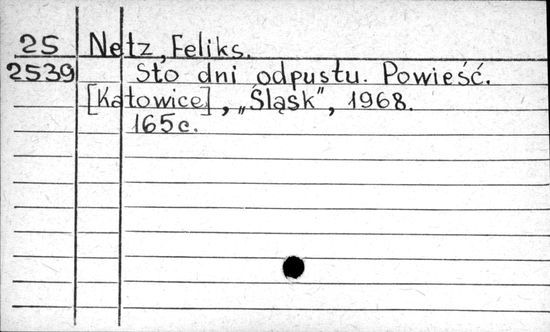 25 Netz, Feliks.
2539 Sto dni odpustu. Powieść.
[Katowice], „Śląsk", 1968.
165c.